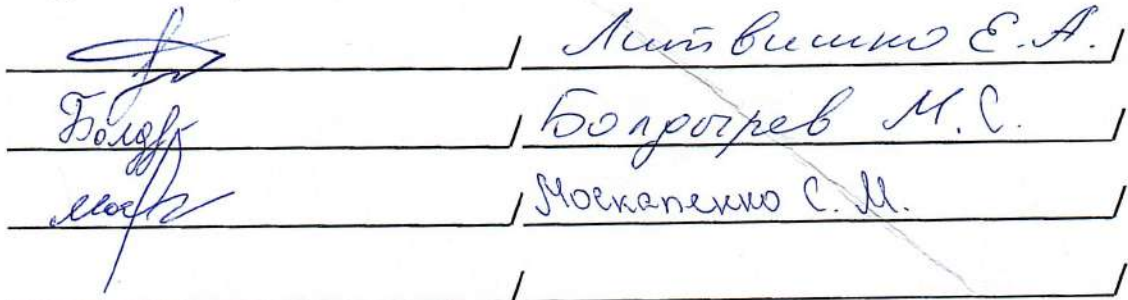 / Литвишко Е.А. /
Болдыр / Болдырев М.С. /
Моск / Москаленко С.М. /
/ /